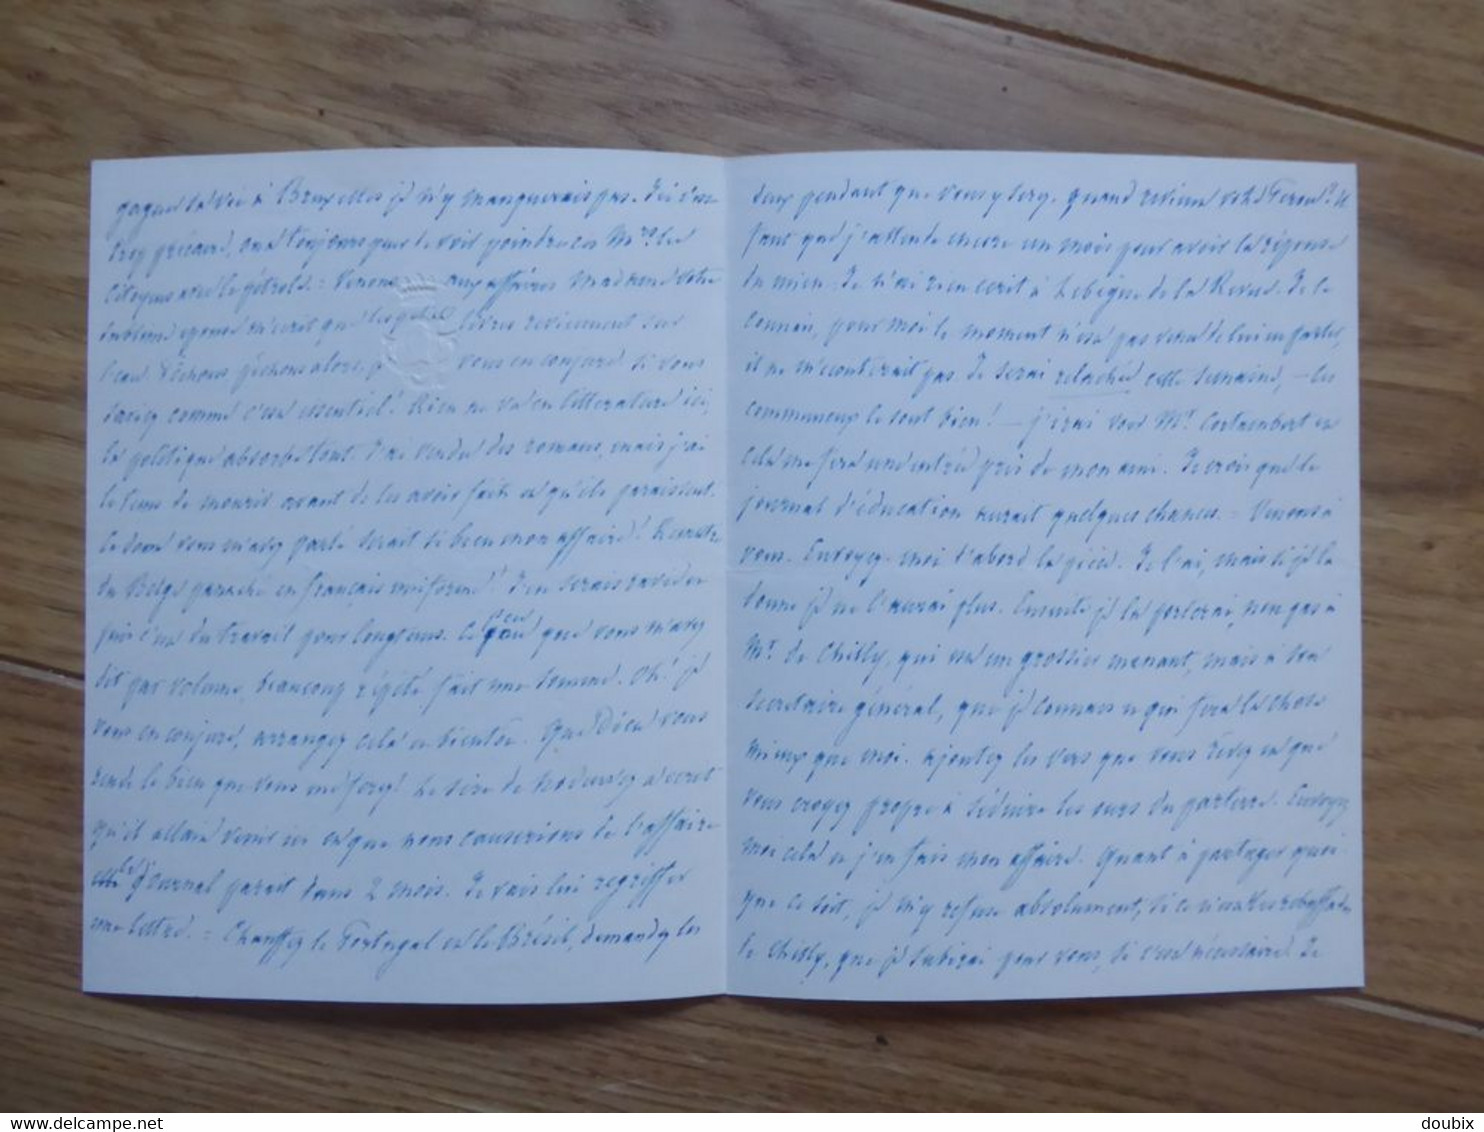 gagner sa vie à Bruxelles je n'y manquerais pas. Ici c'est
trop précaire, on a toujours peur de voir poindre ces Mrs les
citoyens avec le pétrole. = Venons aux affaires Madame votre
m'écrit que les livres reviennent sur
l'eau. Pêchons pêchons alors, je vous en conjure si vous
saviez comme c'est essentiel! Rien ne va en littérature ici,
la politique absorbe tout. J'ai vendu des romans, mais j'ai
le tems de mourir avant de les avoir faits et qu'ils paraissent.
Ce dont vous m'avez parlé serait si bien mon affaire!
du Belge en français J'en serais ravie et
puis c'est du travail pour longtems. Ce peu que vous m'avez
dit par volume, beaucoup répété fait une somme. Oh! je
vous en conjure, arrangez cela et bientôt. Que Dieu vous
rende le bien que vous me ferez! Le sire de m'écrit
qu'il allait venir ici et que nous causerions de l'affaire
le Journal parait dans 2 mois. Je vais lui regriffer
une lettre. = Chauffez le Portugal et le Brésil, demandez les
deux pendant que vous y serez, quand revient votre Il
faut que j'attende encore un mois pour avoir la réponse
du mien. Je n'ai rien écrit à Lebègue de la Revue. Je le
connais, pour moi le moment n'est pas venu de lui en parler,
il ne m'écouterait pas. Je serai relachée cette semaine, — les
communeux le sont bien! — j'irai voir Mr. Cortambert et
cela me fera une entrée près de mon ami. Je crois que le
journal d'éducation aurait quelques chances. = Venons à
vous. Envoyez-moi d'abord la pièce. Je l'ai, mais si je la
donne je ne l'aurai plus. Ensuite je la porterai, non pas à
Mr. de Chilly, qui est un grossier manant, mais à son
secrétaire général, que je connais et qui fera la chose
mieux que moi. Ajoutez les vers que vous rêvez et que
vous croyez propre à séduire les ours du parterre. Envoyez
moi cela et j'en fais mon affaire. Quant à partager quoi-
que ce soit, je m'y refuse absolument, si ce n'est les
de Chilly, que je subirai pour vous, si c'est nécessaire. Je
doubix